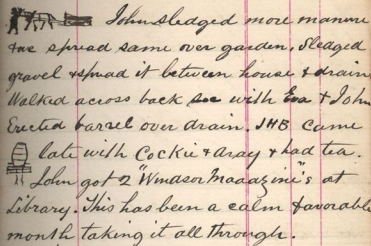 John sledged more manure
& we spread same over garden. Sledged
gravel & spread it between house & drain
Walked across back with Eva & John
Erected barrel over drain. JHB came
late with Cockie & Aray & had tea.
John got 2 "Windsor Magazine"s at
Library. This has been a calm & favorable
month taking it all through.